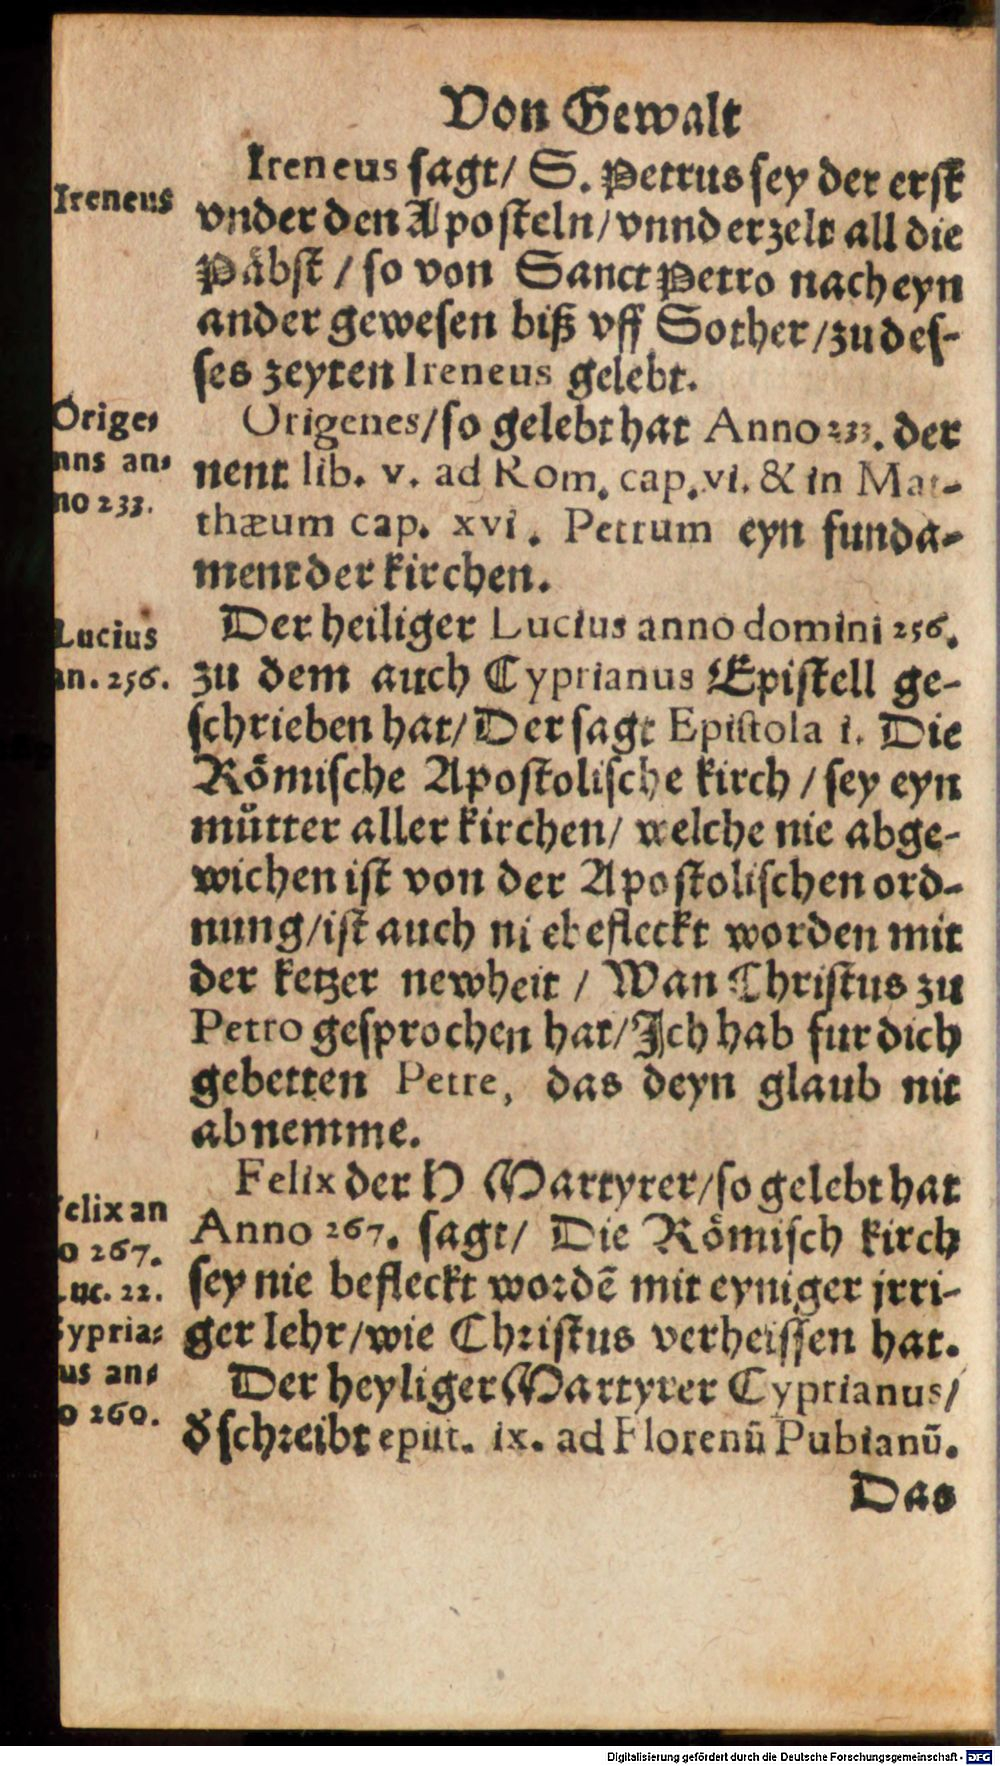 Von Gewalt
Ireneus sagt/ S. Petrus sey der erst
Ireneus
vnder den Aposteln/vnnd erzelt all die
Päbst / so von Sanct Petro nach eyn
ander gewesen biß vff Sother/zu des-
ses zeyten Ireneus gelebt.
Orige-
nns an-
no 233.
Origenes/so gelebt hat Anno 233. der
nent lib. v. ad Rom. cap. vi. & in Mat-
thæum cap. xvi. Petrum eyn funda-
ment der kirchen.
Lucius
an. 256.
Der heiliger Lucius anno domini 256.
zu dem auch Cyprianus Epistell ge-
schrieben hat/ Der sagt Epistola i. Die
Römische Apostolische kirch / sey eyn
můtter aller kirchen/ welche nie abge-
wichen ist von der Apostolischen ord-
nung/ist auch nie befleckt worden mit
der ketzer newheit / Wan Christus zu
Petro gesprochen hat/Ich hab fur dich
gebetten Petre, das deyn glaub nit
abnemme.
Felix der H Martyrer/so gelebt hat
Anno 267. sagt/ Die Römisch kirch
sey nie befleckt wordē mit eyniger jrri-
ger lehr/wie Christus verheissen hat.
elix an
o 267.
uc. 22.
Cypria-
us an-
o 260.
Der heyliger Martyrer Cyprianus/
d̕ schreibt epist. ix. ad Florenū Pubianū.
Das
Digitalisierung gefördert durch die Deutsche Forschungsgemeinschaft - DFG